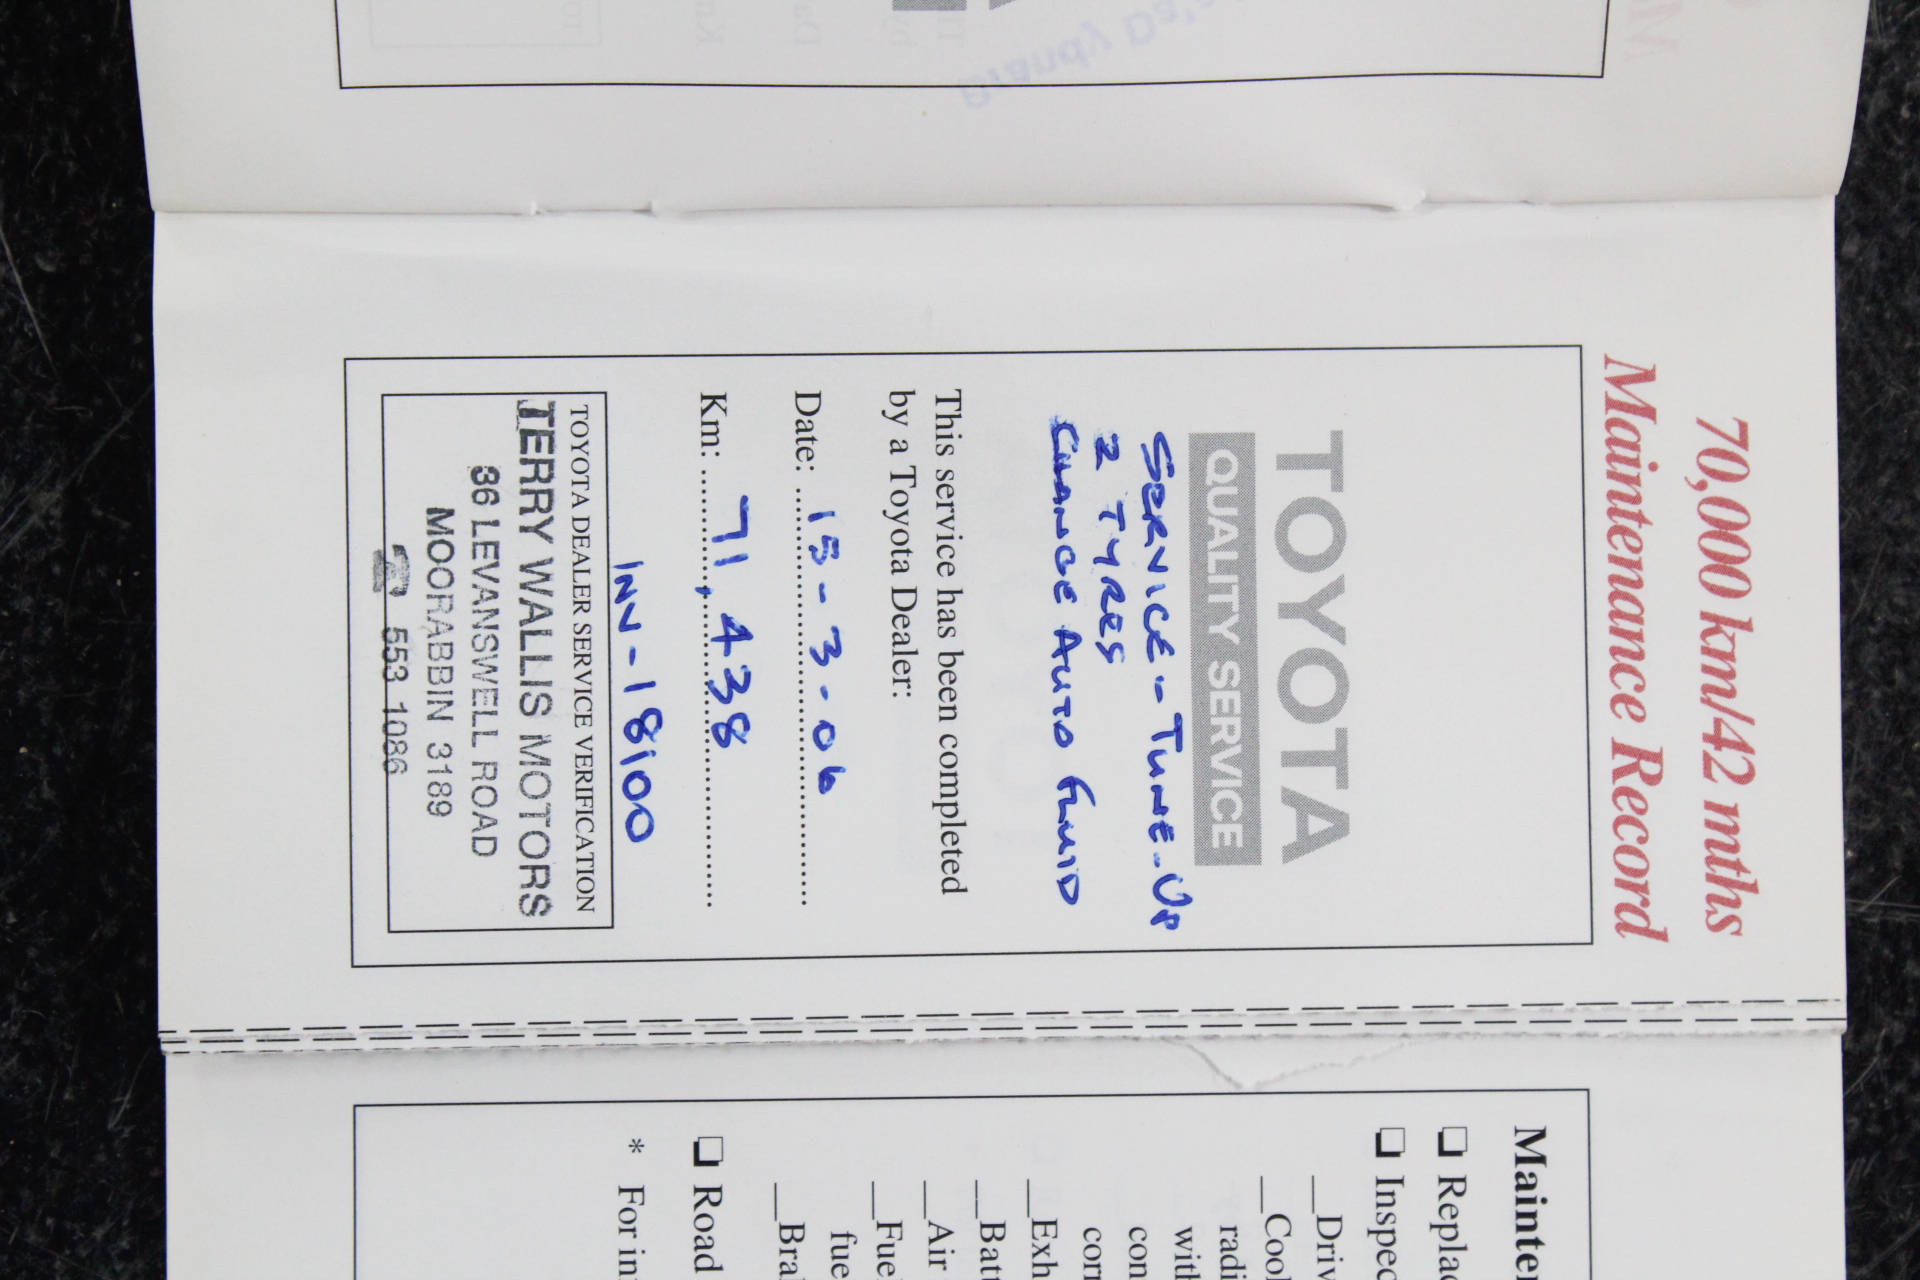 70,000 km/42 mths
Maintenance Record
TOYOTA
QUALITY SERVICE
SERVICE - TUNE-UP
2 TYRES
CHANGE AUTO FLUID
This service has been completed
by a Toyota Dealer:
Date: 15-3-06
Km: 71,438
INV-18100
TOYOTA DEALER SERVICE VERIFICATION
TERRY WALLIS MOTORS
36 LEVANSWELL ROAD
MOORABBIN 3189
☎ 553 1086
Mainten
❏ Replac
❏ Inspec
__Driv
__Cool
radi
with
con
corr
__Exh
__Batt
__Air
__Fue
fue
__Bra
❏ Road
* For in